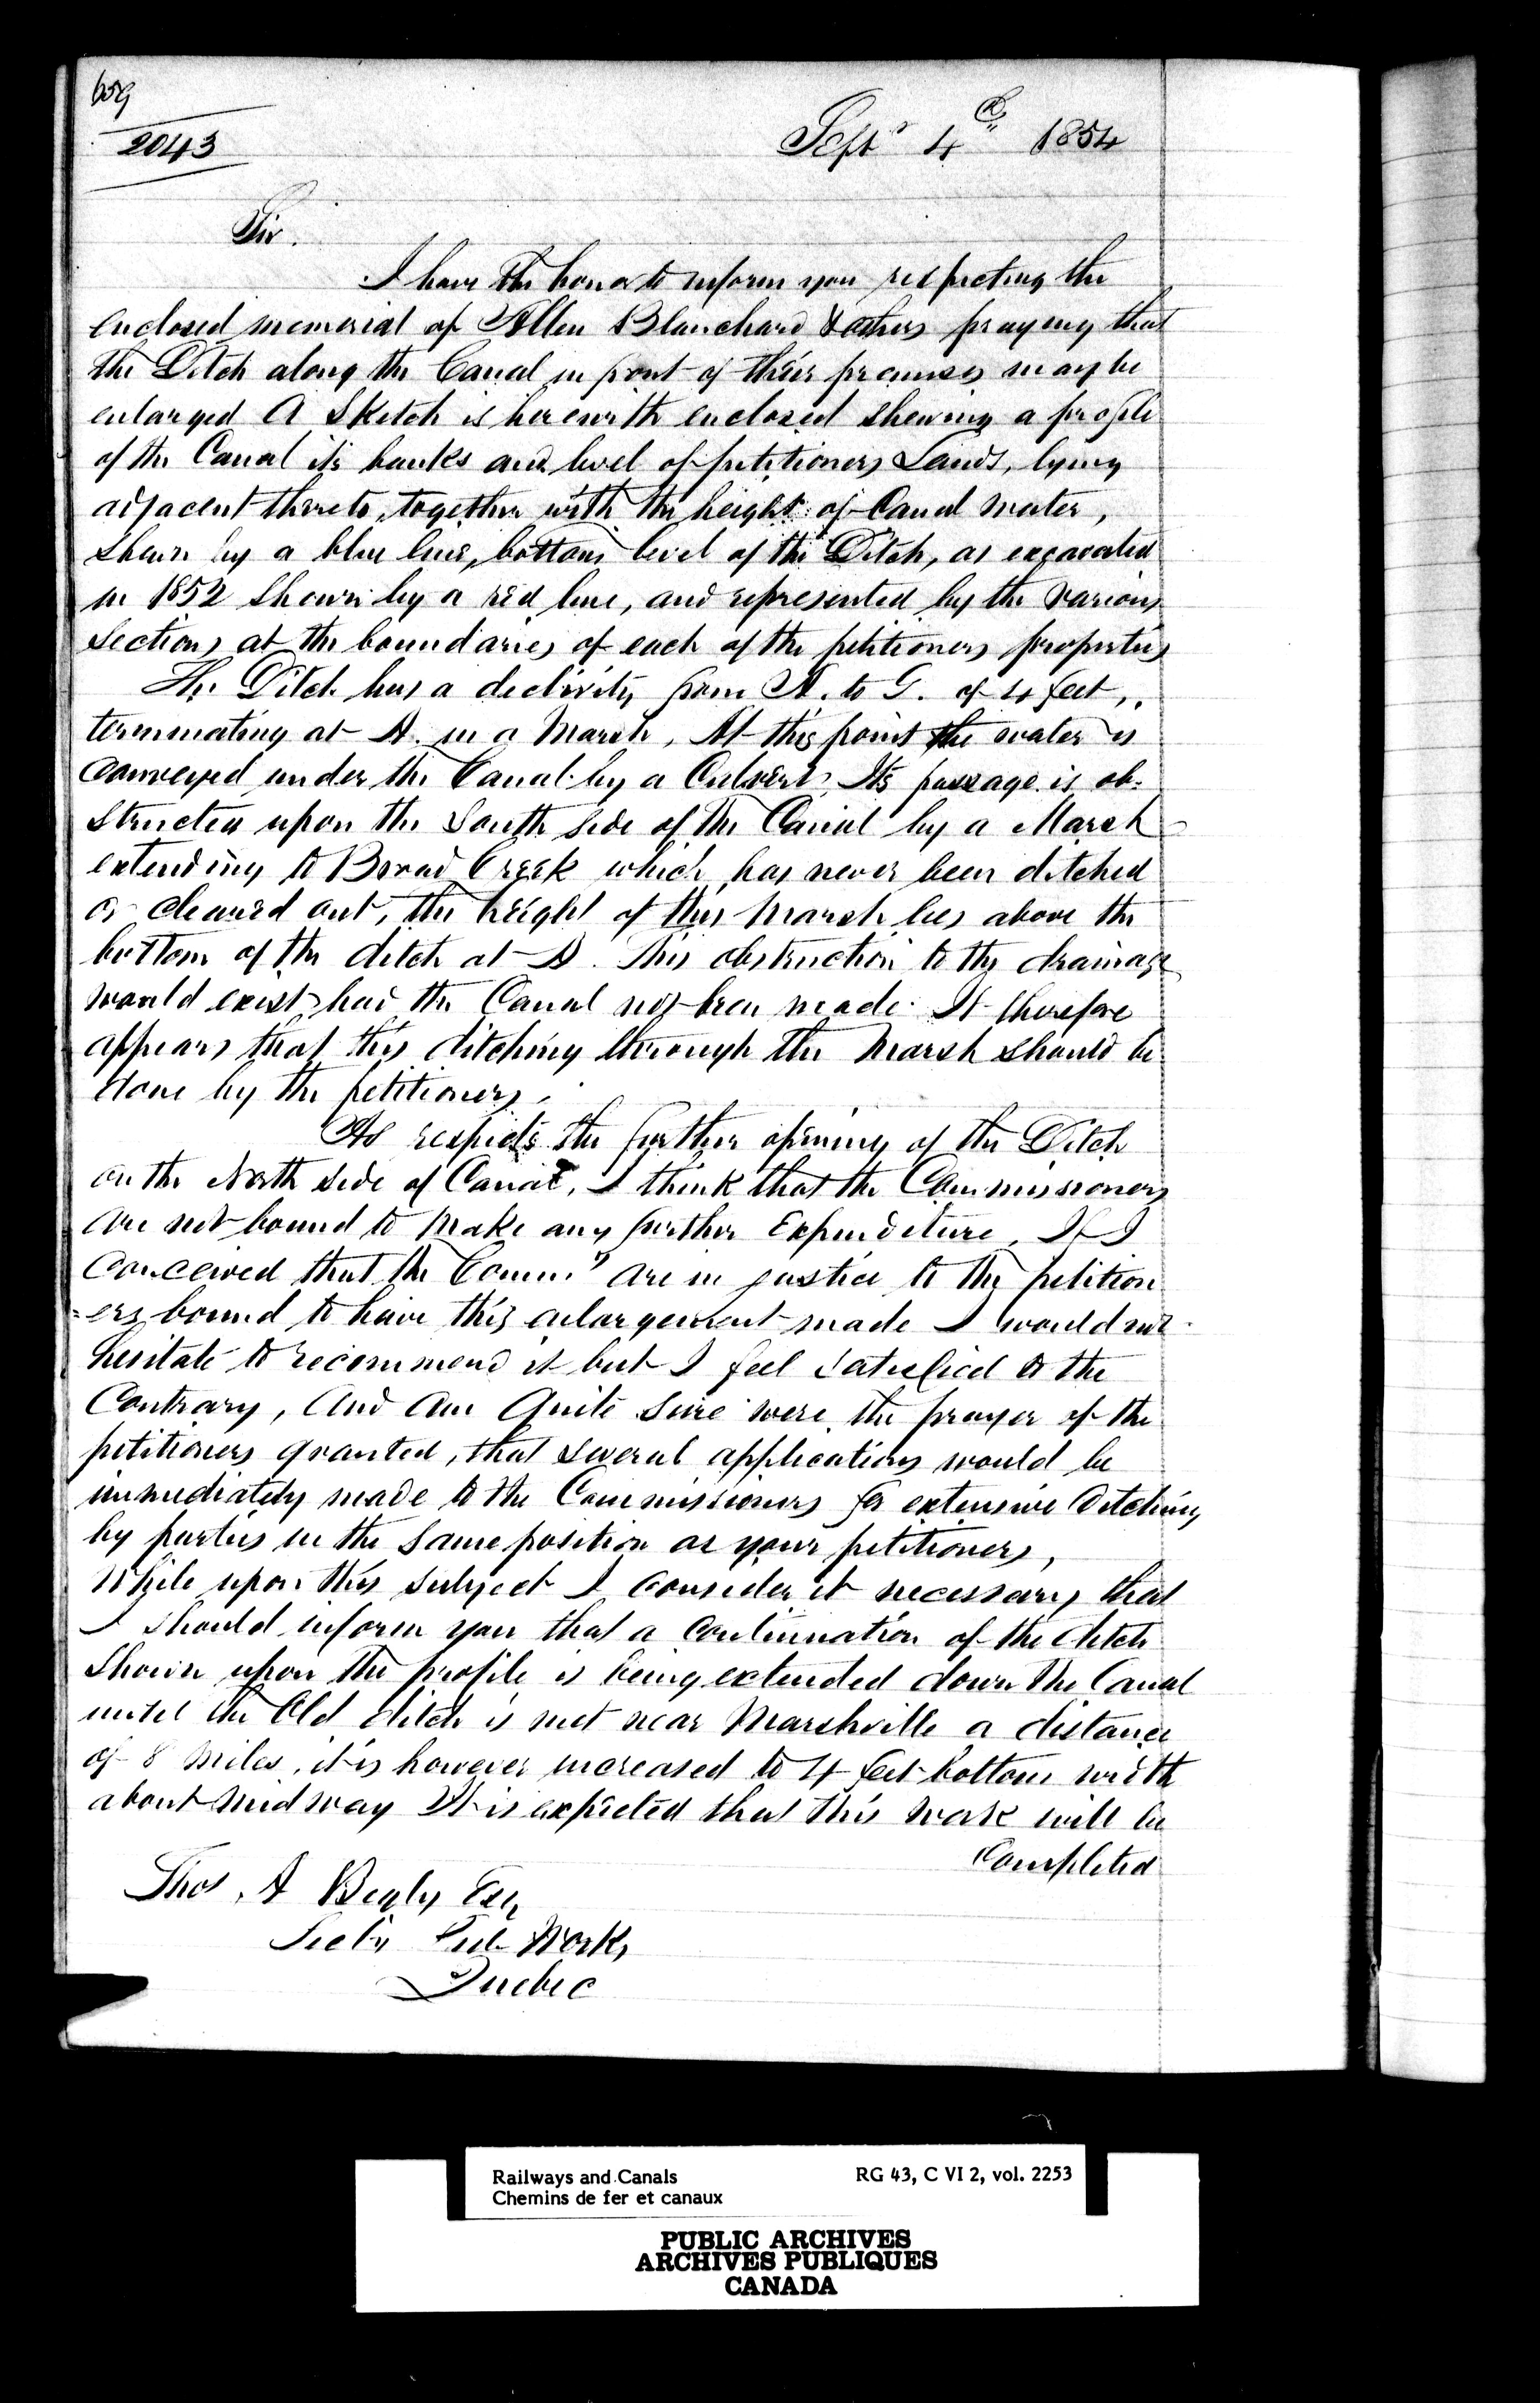 659
2043
Septr 4th 1854
Sir.
I have the honor to inform you respecting the
enclosed memorial of Allen Blanchard & others praying that
the Ditch along the Canal in front of their premises may be
enlarged A Sketch is herewith enclosed shewing a profile
of the Canal its banks and level of petitioners Lands, lying
adjacent thereto, together with the height of Canal water,
shewn by a blue line, bottom level of the Ditch, as excavated
in 1852 Shewn by a red line, and represented by the various
Sections at the boundaries of each of the petitioners properties
The Ditch has a declivity from A. to G. of 4 feet,
terminating at A. in a Marsh, At this point the water is
conveyed under the Canal by a Culvert, Its passage is ob-
structed upon the South side of the Canal by a Marsh
extending to Broad Creek which has never been ditched
or cleared out, the height of this Marsh lies above the
bottom of the ditch at A. This obstruction to the drainage
would exist had the Canal not been made. It therefore
appears that this ditching through the Marsh should be
done by the petitioners.
As respects the further opening of the Ditch
on the North side of Canal, I think that the Commissioners
are not bound to make any further Expenditure, If I
conceived that the Commrs are in justice to the petition
=ers bound to have this enlargement made I would not
hesitate to recommend it but I feel satisfied to the
Contrary, And am Quite sure were the prayer of the
petitioners granted, that several applications would be
immediately made to the Commissioners for extensive Ditching
by parties in the same position as your petitioners,
While upon this subject I consider it necessary that
I should inform you that a continuation of the ditch
shown upon the profile is being extended down the Canal
until the Old ditch is met near Marshville a distance
of 8 miles, it is however increased to 4 feet bottom width
about midway It is expected that this work will be
Completed
Thos. A Begly Esq
Secty Pub Works
Quebec
Railways and Canals
Chemins de fer et canaux
RG 43, C VI 2, vol. 2253
PUBLIC ARCHIVES
ARCHIVES PUBLIQUES
CANADA